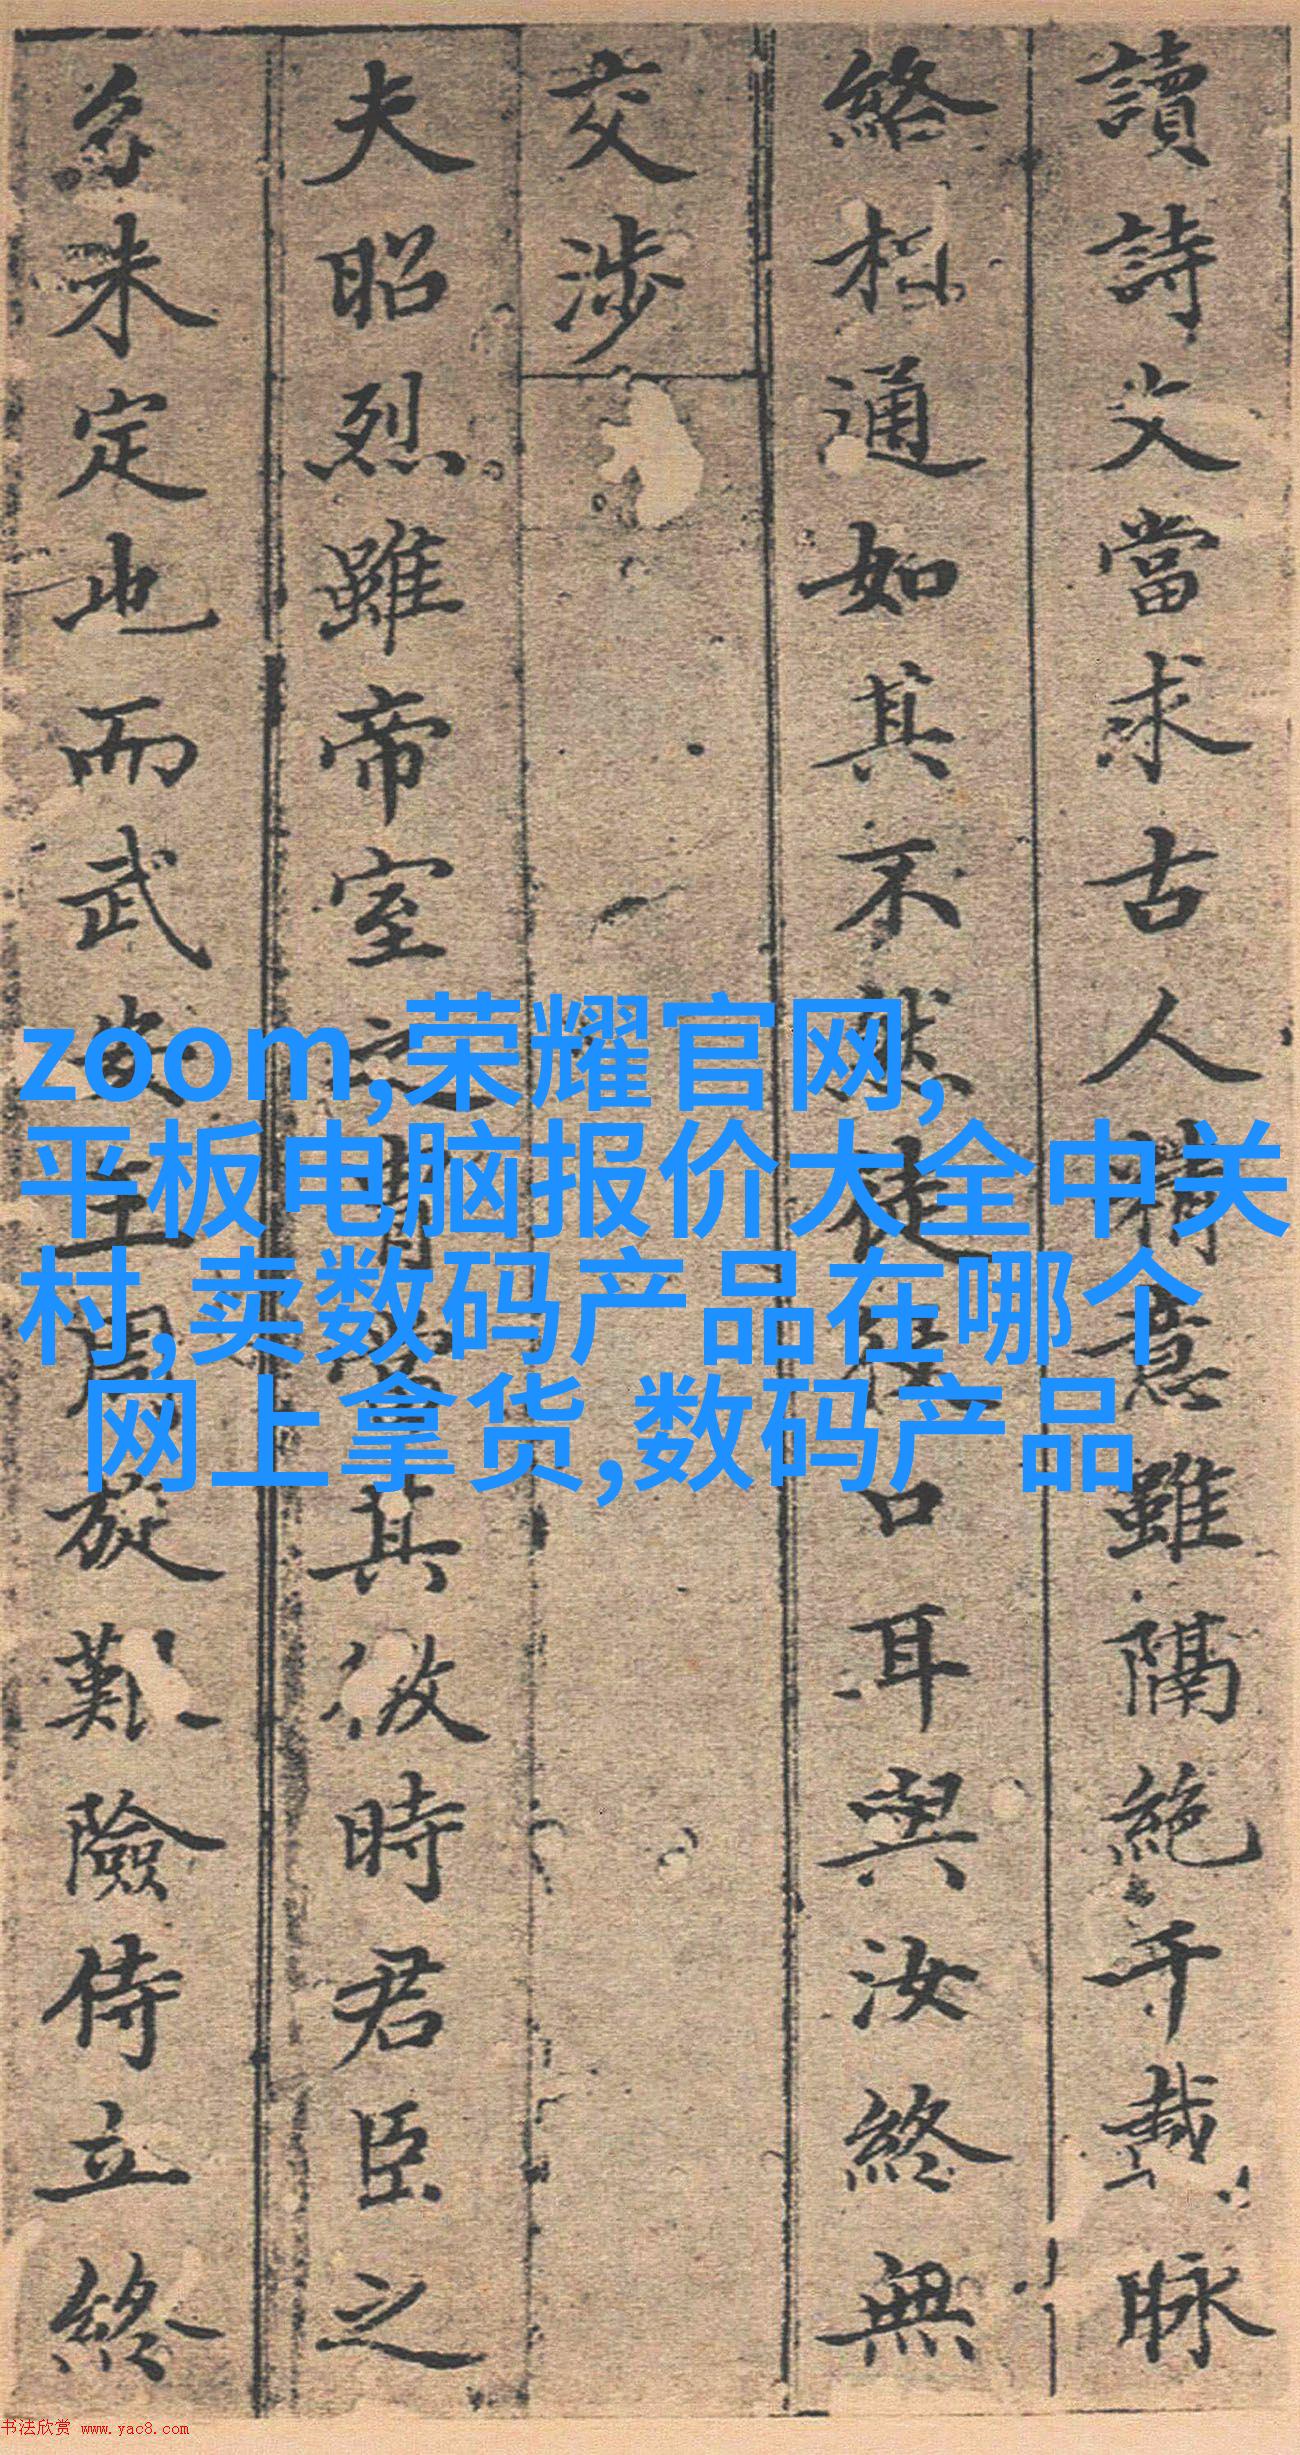 讀詩文當求古人精意雖隔絶千載脉
絡相通如其不然徒口耳與汝終無
交涉
夫昭烈雖帝室之胄當其微時君臣之
分未定也而武安王周旋艱險侍立終
zoom,荣耀官网,
平板电脑报价大全中关
村,卖数码产品在哪个
网上拿货,数码产品
书法欣赏 www.yac8.com